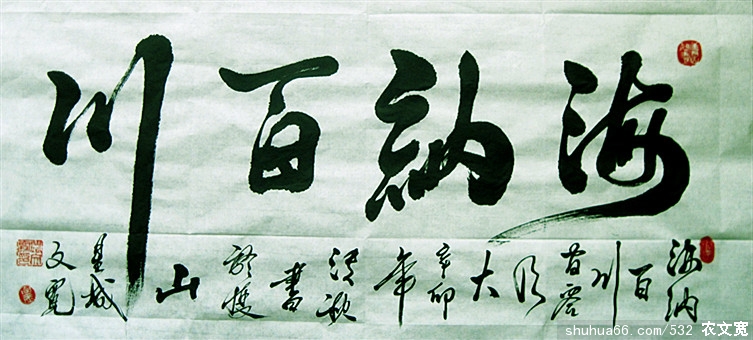 海纳百川
海纳百川有容乃大辛卯年清秋書山星城文宽
shuhua66.com/532 农文宽